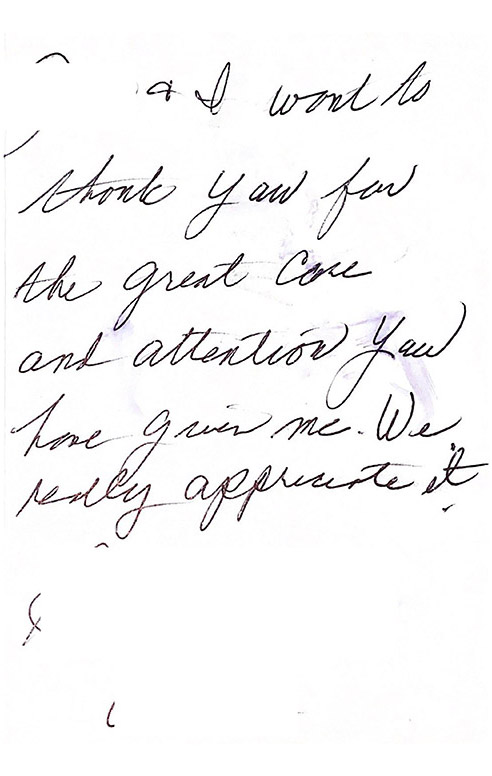 & I want to
thank you for
the great care
and attention you
have given me. We
really appreciate it.
&